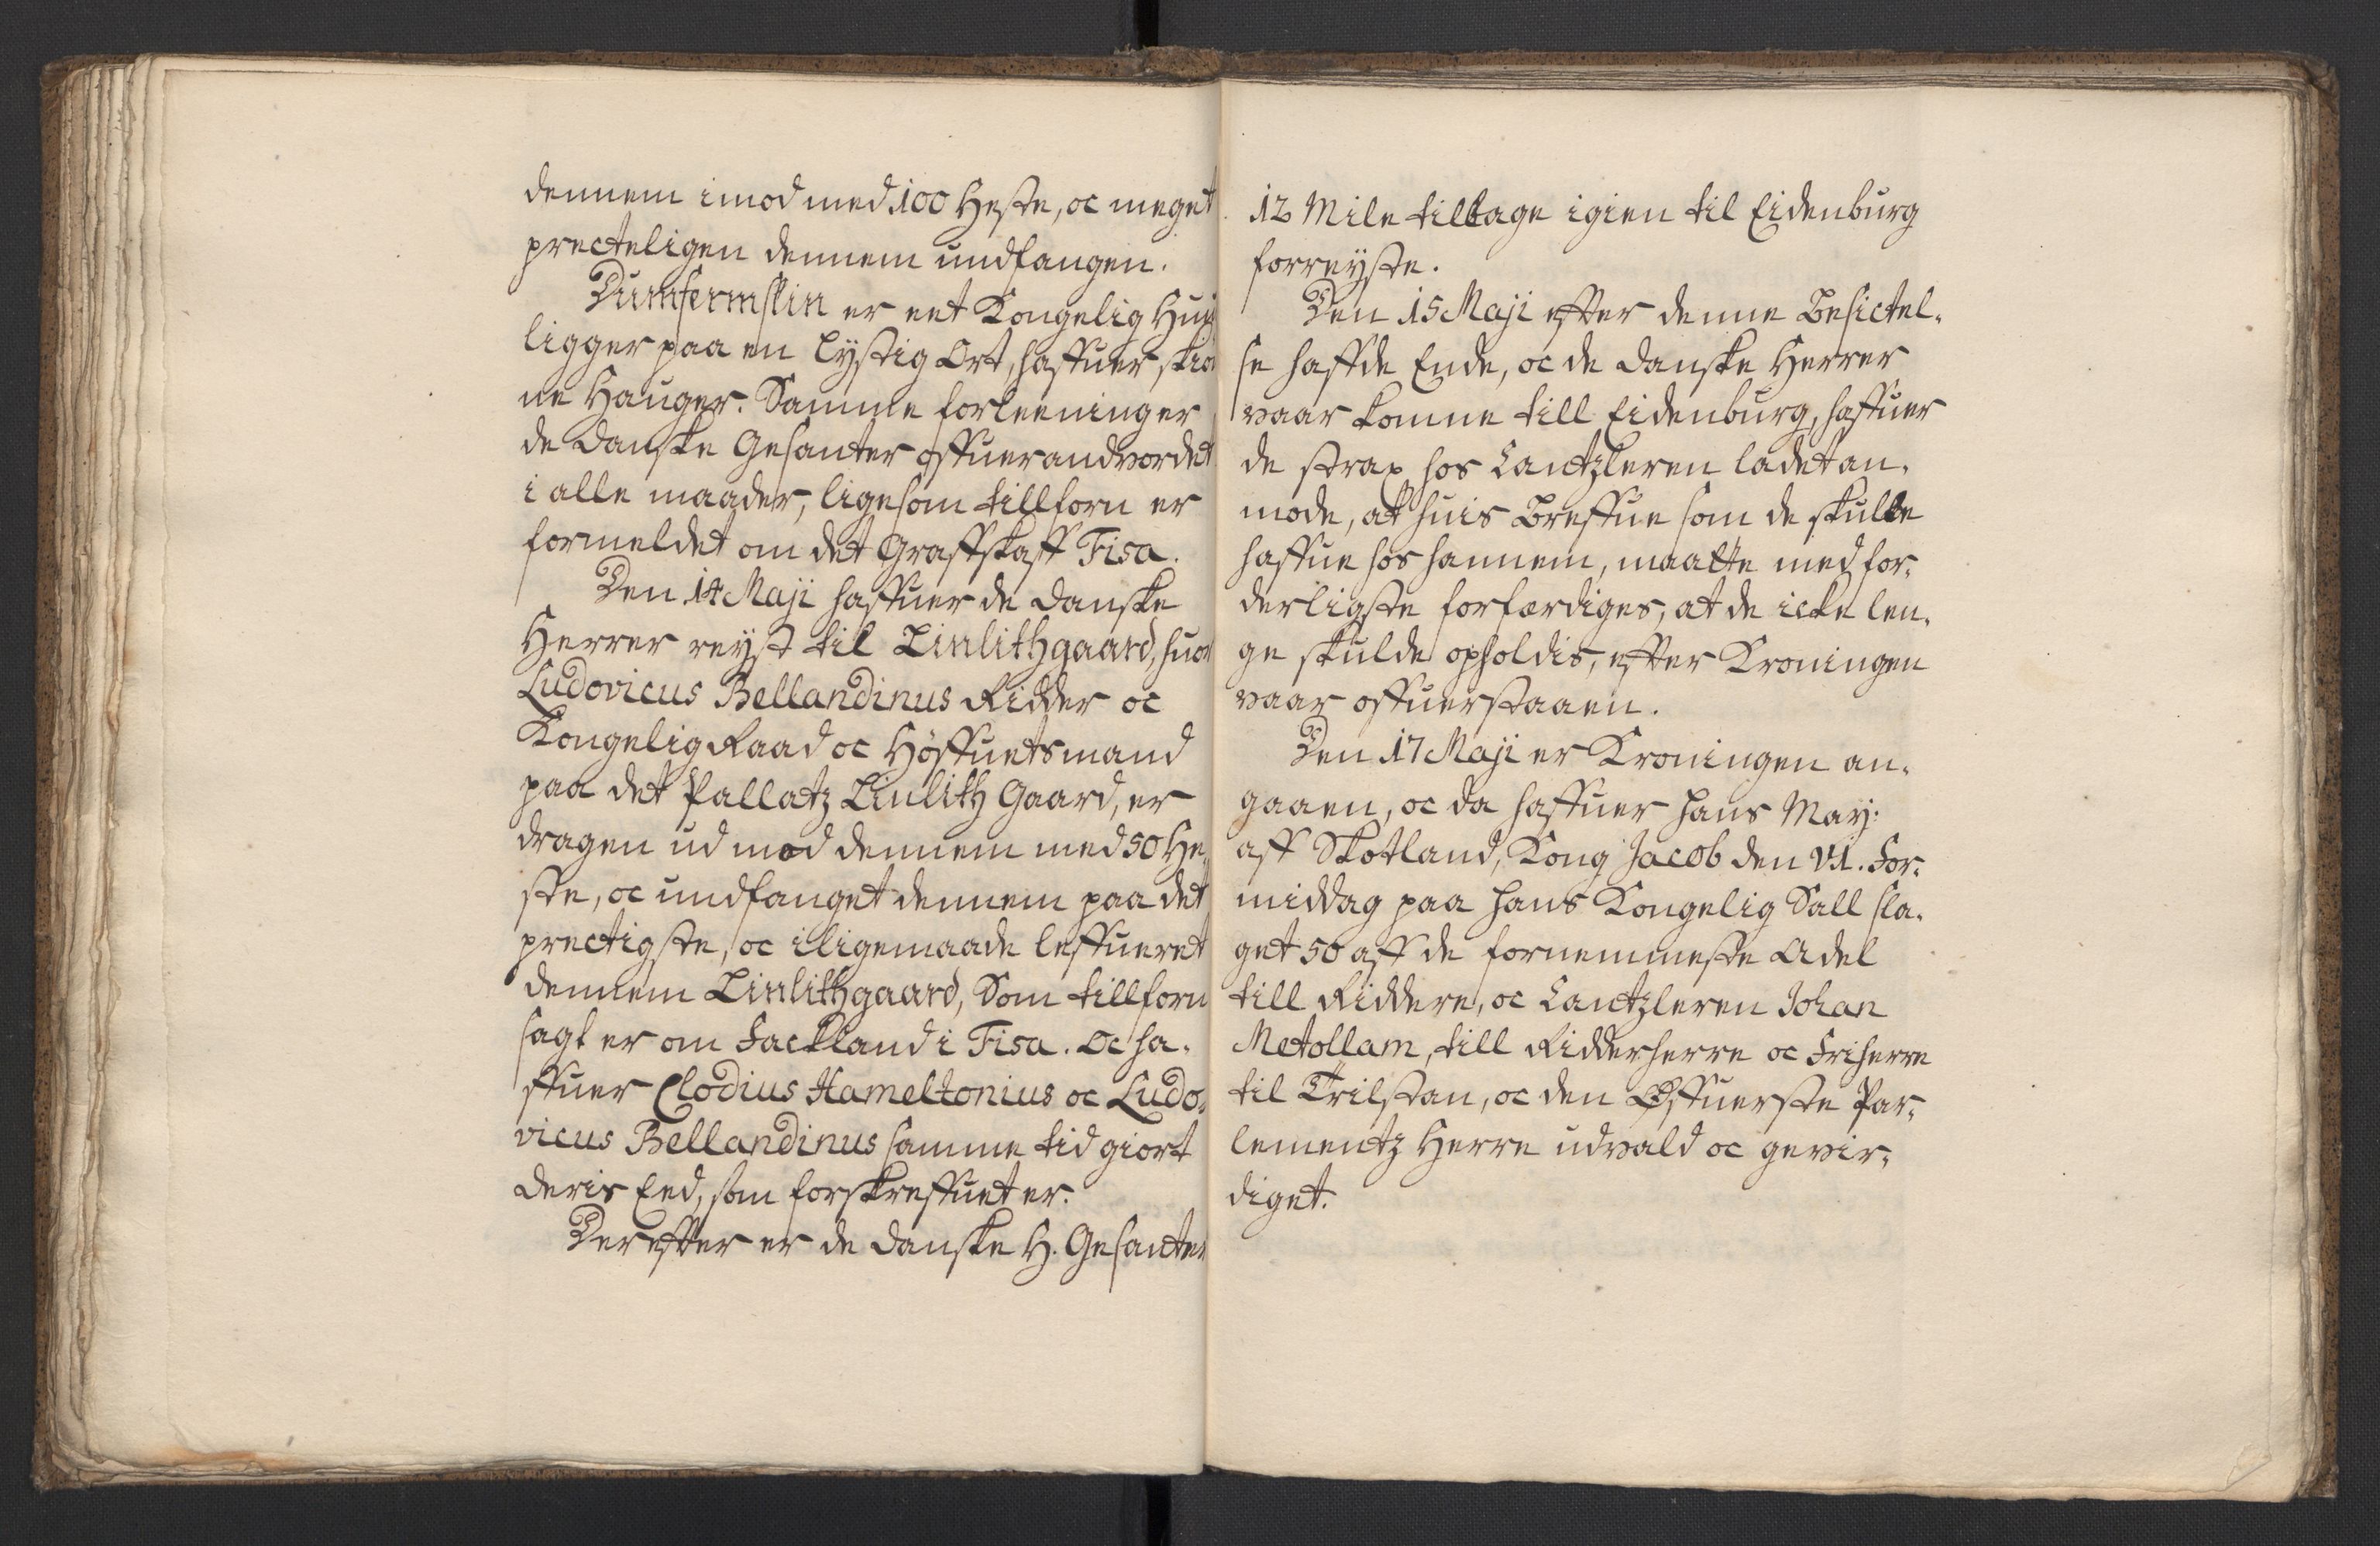 dennem imod med 100 Heste, oc meget
precteligen dennem undfangen.
Dumfermslin er eet Kongelig Huus
ligger paa en lystig Ort, haffuer skiø
ne Hauger. Samme forleeninger
de Danske Gesanter offuerandvordet
i alle maader, ligesom tillforn er
formeldet om det Graffskaff Fisa.
Den 14 Maji haffuer de Danske
Herrer reyst til Linlithgaard, huor
Ludovicus Bellandinus Ridder oc
Kongelig Raad oc Høffuetsmand
paa det Pallatz Linlith Gaard, er
dragen ud mod dennem med 50 He,
ste, oc undfanget dennem paa det
prectigste, oc i ligemaade leffueret
dennem Linlithgaard, Som tillforn
sagt er om Fackland i Fisa. Oc ha,
ffuer Clodius Hameltonius oc Ludo,
vicus Bellandinus samme tid giort
deris Eed, som forskreffuet er.
Dereffter er de Danske H. Gesanter
12 Mile tilbage igien til Eidenburg
forreyste.
Den 15 Maji effter denne Besictel,
se haffde Ende, oc de Danske Herrer
vaar komne till Eidenburg, haffuer
de strax hos Cantzleren ladet an,
mode, at huis Breffue som de skulle
haffue hos hannem, maatte med for,
derligste forfærdiges, at de icke len,
ge skulde opholdis, effter Kroningen
vaar offuerstaaen.
Den 17 Maji er Kroningen an,
gaaen, oc da haffuer Hans May:
aff Skotland, Kong Jacob den VI. For,
middag paa Hans Kongelig Sall sla,
get 50 aff de fornemmeste Adel
till Riddere, oc Cantzleren Johan
Metollam, till Ridderherre oc Friherre
til Trilstan, oc den Øffuerste Par,
lementz Herre udvald oc gevir,
diget.